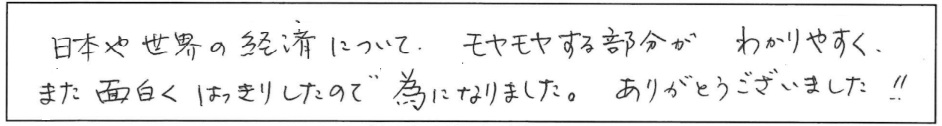 日本や世界の経済について、モヤモヤする部分が わかりやすく、
また面白くはっきりしたので為になりました。 ありがとうございました!!